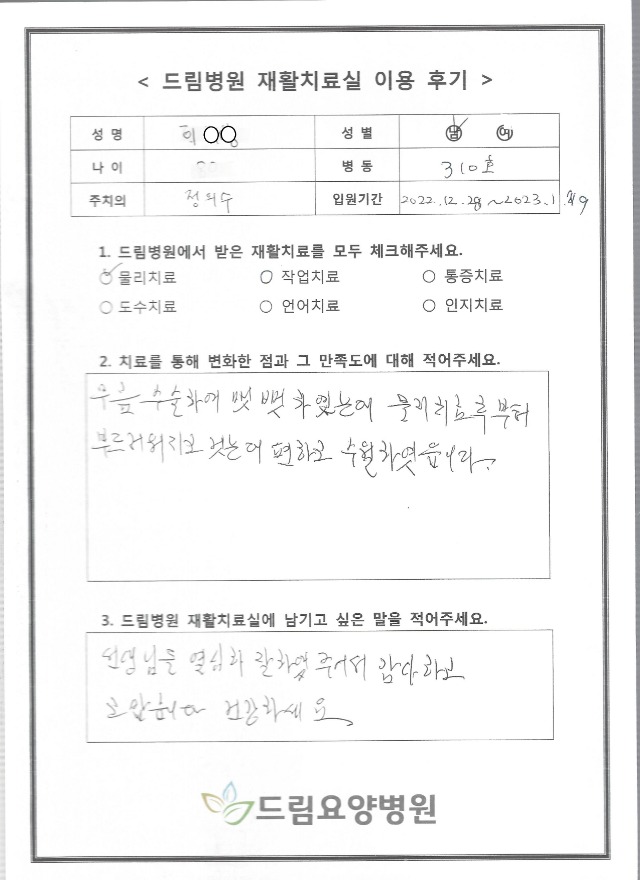 < 드림병원 재활치료실 이용 후기 >
성 명 허 ○○ 성 별 남 여
나 이 병 동 310호
주치의 정의수 입원기간 2022.12.28~2023.1.9
1. 드림병원에서 받은 재활치료를 모두 체크해주세요.
○ 물리치료 ○ 작업치료 ○ 통증치료
○ 도수치료 ○ 언어치료 ○ 인지치료
2. 치료를 통해 변화한 점과 그 만족도에 대해 적어주세요.
무릎 수술하여 뻣 뻣 하였는데 물리치료 후부터
부드러워지고 걷는데 편하고 수월하엿읍니다.
3. 드림병원 재활치료실에 남기고 싶은 말을 적어주세요.
선생님들 열심히 잘하여 주어서 감사하고
고맙습니다 건강하세요
드림요양병원